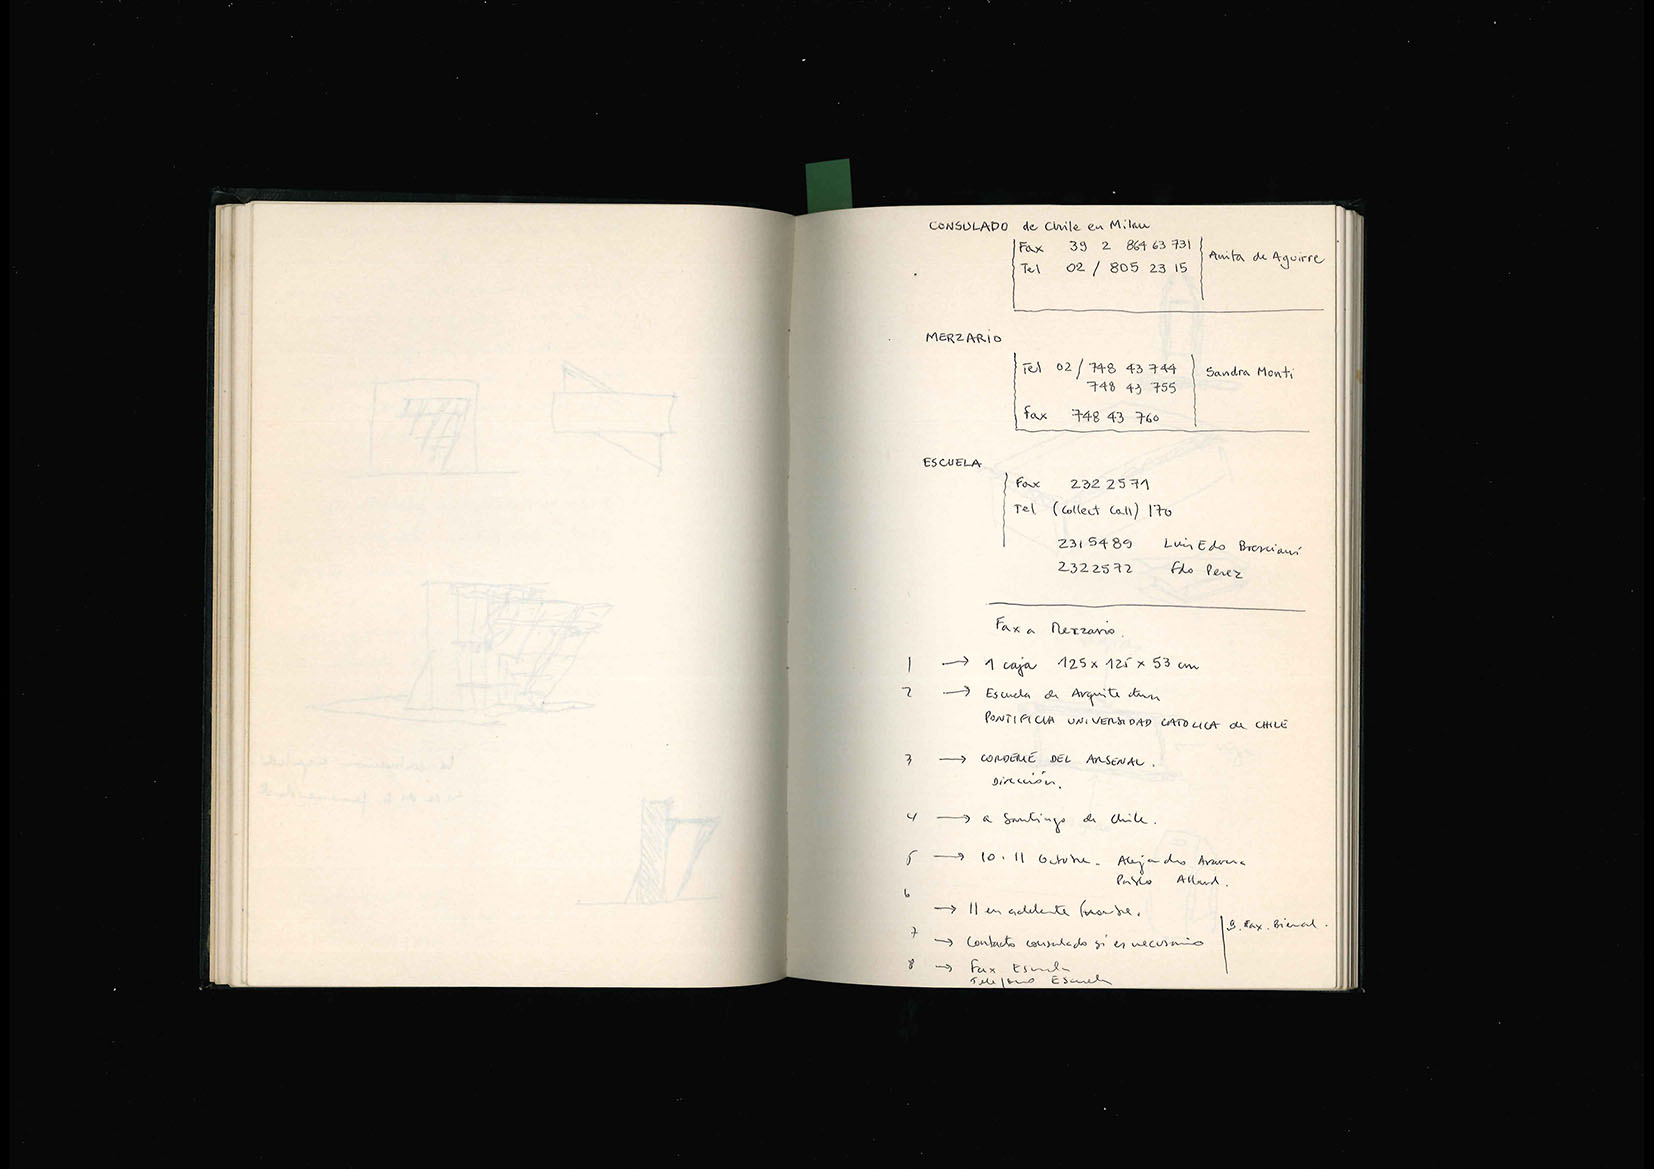 CONSULADO de Chile en Milan
Fax 39 2 864 63 731
Anita de Aguirre
Tel 02 / 805 23 15
MERZARIO
Tel 02 / 748 43 744
Sandra Monti
748 43 755
fax 748 43 760
ESCUELA
Fax 232 2571
Tel (collect call) 170
2315489 Luis Edo Bresciani
2322572 Fdo Perez
Fax a Merzario.
1 → 1 caja 125 x 125 x 53 cm
2 → Escuela de Arquitectura
PONTIFICIA UNIVERSIDAD CATOLICA de CHILE
3 → CORDERIE DEL ARSENAL.
Dirección.
4 → a Santiago de Chile.
5 → 10 . 11 Octubre. Alejandro Aravena
Pablo Allard.
6
→ 11 en adelante
9. Fax. Bienal.
7 → Contacto consulado si es necesario
8 → Fax Escuela
Telefono Escuela